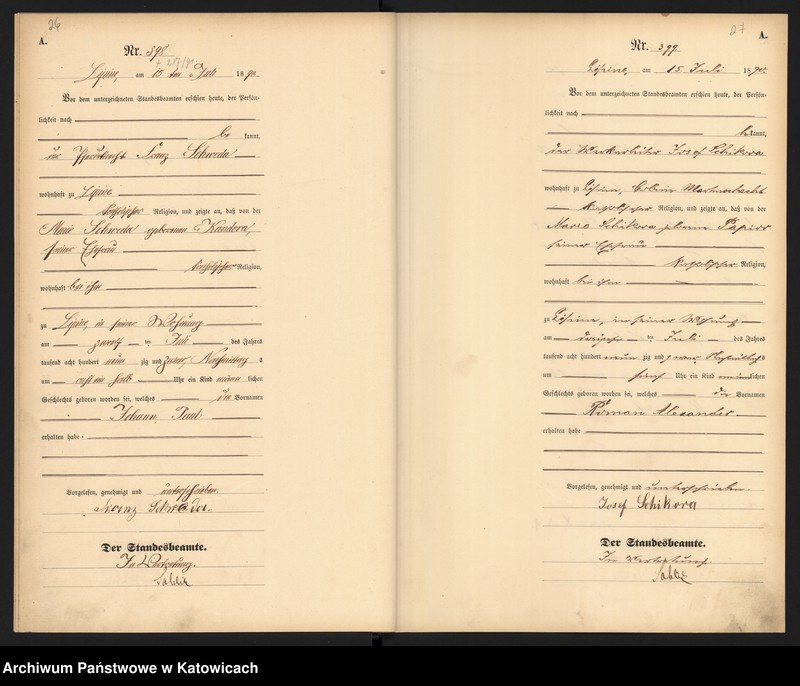 26
A.
Nr. 398
Lipine, am 15 ten Juli 1890.
Vor dem unterzeichneten Standesbeamten erschien heute, der Persön-
lichkeit nach
be kannt,
der Pferdeknecht Franz Schweda
wohnhaft zu Lipine
katholischer Religion, und zeigte an, daß von der
Marie Schweda geborenen Kandora,
seiner Ehefrau
katholischer Religion,
wohnhaft bei ihm
zu Lipine, in seiner Wohnung
am zwölf ten Juli des Jahres
tausend acht hundert neun zig und zwar, Nachmittag s
um acht ein halb Uhr ein Kind männ lichen
Geschlechts geboren worden sei, welches die Vornamen
Johann, Paul
erhalten habe.
Vorgelesen, genehmigt und unterschrieben.
Franz Schweda.
Der Standesbeamte.
In Vertretung.
27
A.
Nr. 399
Lipine, am 15. Juli 1890.
Vor dem unterzeichneten Standesbeamten erschien heute, der Persön-
lichkeit nach
bekannt,
der Josef Schikora
wohnhaft zu Lipine, Colonie
katholischer Religion, und zeigte an, daß von der
Marie Schikora geborenen
seiner Ehefrau
katholischer Religion,
wohnhaft bei ihm
zu Lipine, in seiner Wohnung
am ten Juli des Jahres
tausend acht hundert neun zig und zwar Nachmittags
um fünf Uhr ein Kind männlichen
Geschlechts geboren worden sei, welches die Vornamen
Roman Alexander
erhalten habe
Vorgelesen, genehmigt und unterschrieben.
Josef Schikora
Der Standesbeamte.
In Vertretung.
Archiwum Państwowe w Katowicach